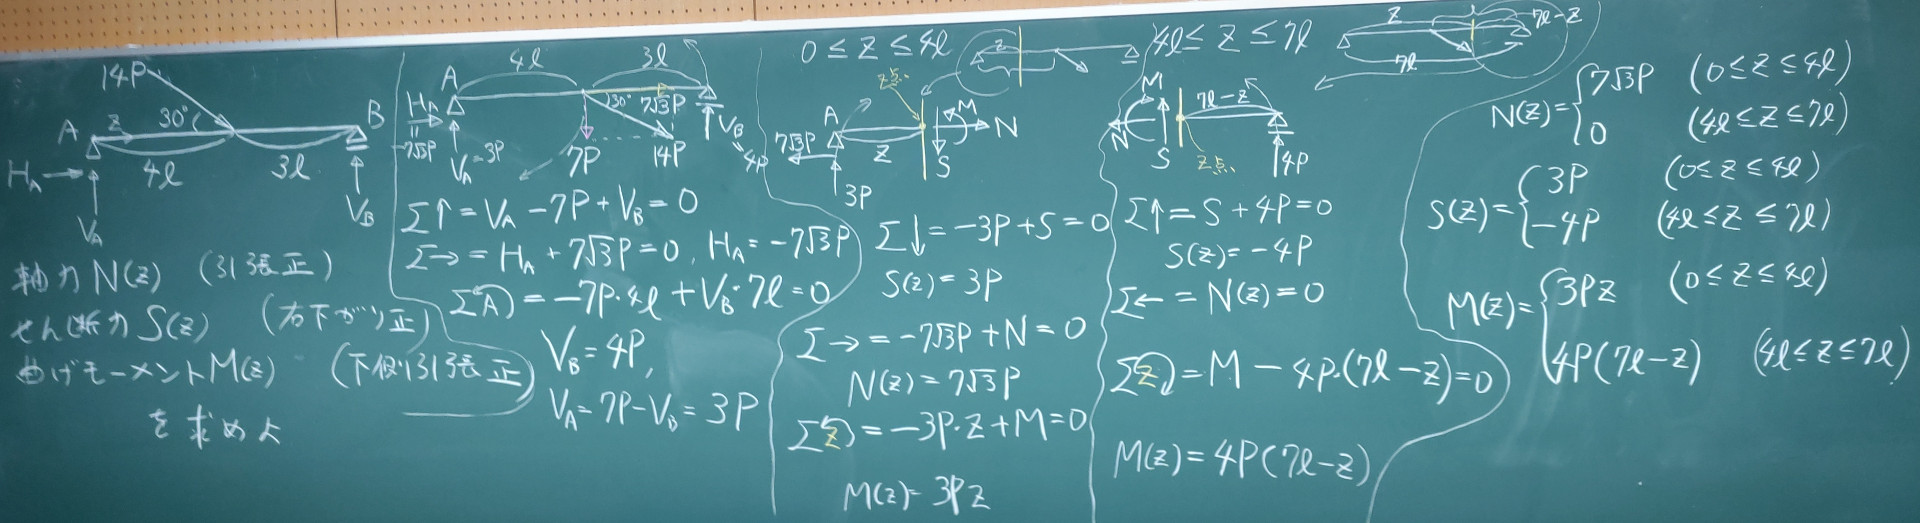 14P
30°
A
z
B
4l
3l
H_A
V_A
V_B
軸力N(z) (引張正)
せん断力S(z) (右下がり正)
曲げモーメントM(z) (下側引張正)
を求めよ
4l
3l
A
H_A
=
-7√3P
30°
7√3P
V_A=3P
7P
14P
V_B=4P
Σ↑=V_A-7P+V_B=0
Σ→=H_A+7√3P=0, H_A=-7√3P
ΣA)=-7P·4l+V_B·7l=0
V_B=4P,
V_A=7P-V_B=3P
0≤z≤4l
z
z点
A
M
7√3P
N
z
S
3P
Σ↓=-3P+S=0
S(z)=3P
Σ→=-7√3P+N=0
N(z)=7√3P
Σz)=-3P·z+M=0
M(z)=3Pz
4l≤z≤7l
z
7l-z
7l
M
7l-z
N
S
z点
4P
Σ↑=S+4P=0
S(z)=-4P
Σ←=N(z)=0
Σz)=M-4P·(7l-z)=0
M(z)=4P(7l-z)
N(z)={7√3P (0≤z≤4l)
0 (4l≤z≤7l)
S(z)={3P (0≤z≤4l)
-4P (4l≤z≤7l)
M(z)={3Pz (0≤z≤4l)
4P(7l-z) (4l≤z≤7l)